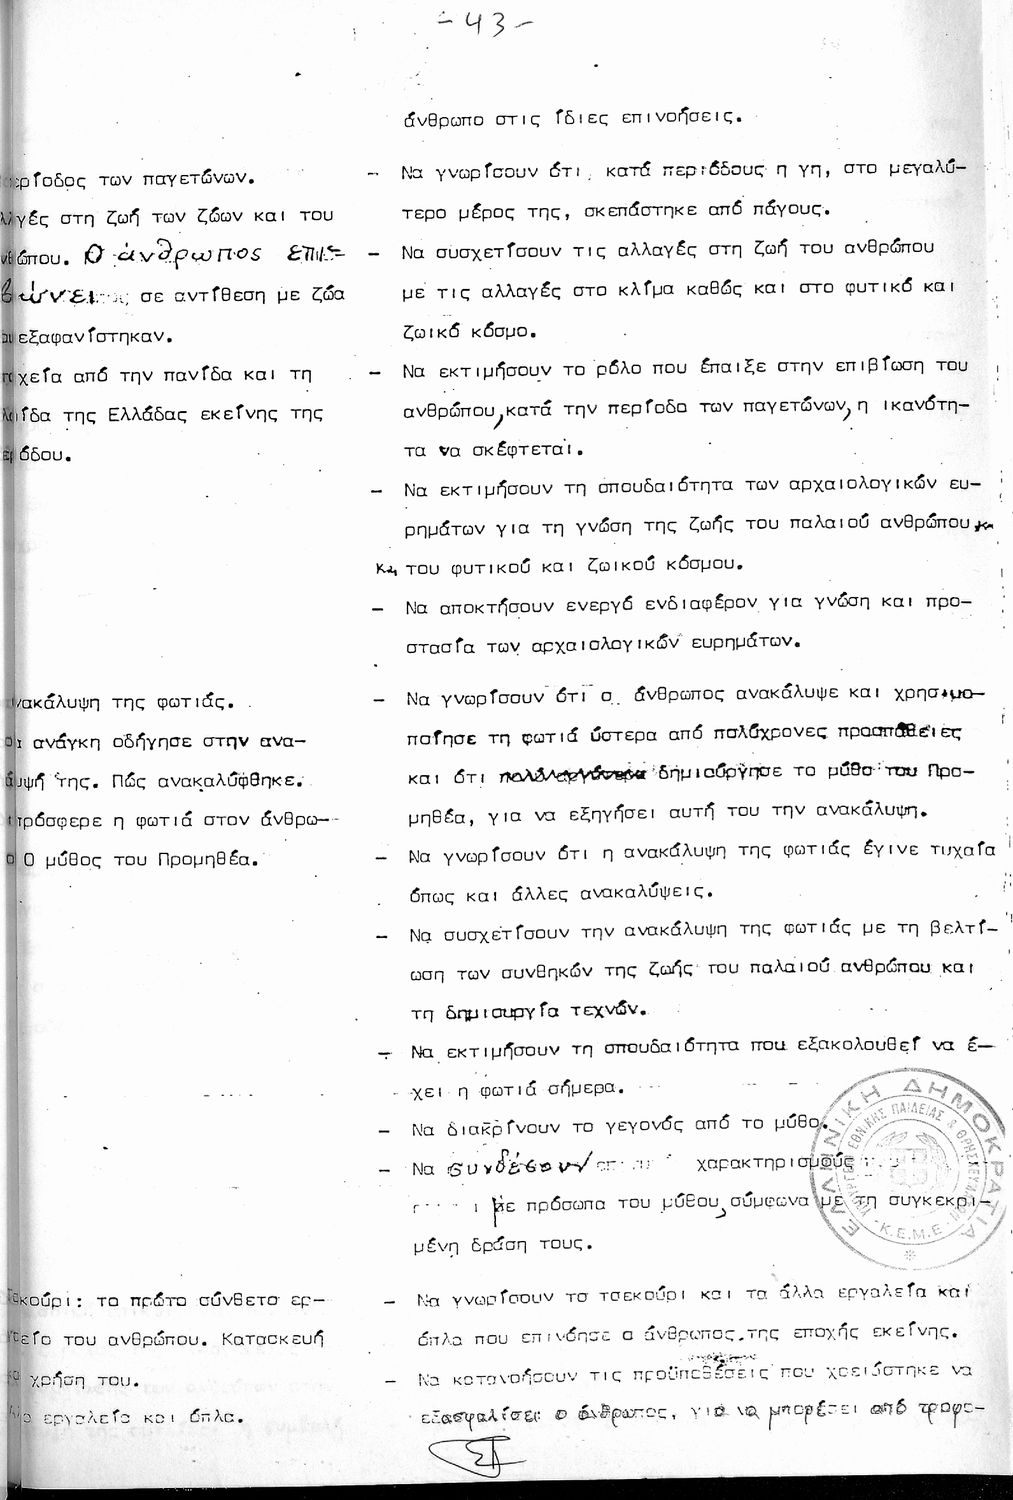 - 43 -
άνθρωπο στις ίδιες επινοήσεις.
ερίοδος των παγετώνων.
λγές στη ζωή των ζώων και του
νθώπου. Ο άνθρωπος επι-
βιώνει σε αντίθεση με ζώα
εξαφανίστηκαν.
χεία από την πανίδα και τη
λίδα της Ελλάδας εκείνης της
όδου.
- Να γνωρίσουν ότι, κατά περιόδους η γη, στο μεγαλύ-
τερο μέρος της, σκεπάστηκε από πάγους.
- Να συσχετίσουν τις αλλαγές στη ζωή του ανθρώπου
με τις αλλαγές στο κλίμα καθώς και στο φυτικό και
ζωικό κόσμο.
- Να εκτιμήσουν το ρόλο που έπαιξε στην επιβίωση του
ανθρώπου, κατά την περίοδο των παγετώνων, η ικανότη-
τα να σκέφτεται.
- Να εκτιμήσουν τη σπουδαιότητα των αρχαιολογικών ευ-
ρημάτων για τη γνώση της ζωής του παλαιού ανθρώπου και
και του φυτικού και ζωικού κόσμου.
- Να αποκτήσουν ενεργό ενδιαφέρον για γνώση και προ-
στασία των αρχαιολογικών ευρημάτων.
νακάλυψη της φωτιάς.
ανάγκη οδήγησε στην ανα-
υψή της. Πώς ανακαλύφθηκε.
πρόσφερε η φωτιά στον άνθρω-
Ο μύθος του Προμηθέα.
- Να γνωρίσουν ότι ο άνθρωπος ανακάλυψε και χρησιμο-
ποίησε τη φωτιά ύστερα από πολύχρονες προσπάθειες
και ότι δημιούργησε το μύθο του Προ-
μηθέα, για να εξηγήσει αυτή του την ανακάλυψη.
- Να γνωρίσουν ότι η ανακάλυψη της φωτιάς έγινε τυχαία
όπως και άλλες ανακαλύψεις.
- Να συσχετίσουν την ανακάλυψη της φωτιάς με τη βελτί-
ωση των συνθηκών της ζωής του παλαιού ανθρώπου και
τη δημιουργία τεχνών.
- Να εκτιμήσουν τη σπουδαιότητα που εξακολουθεί να έ-
χει η φωτιά σήμερα.
- Να διακρίνουν το γεγονός από το μύθο.
- Να συνδέσουν χαρακτηρισμούς
με πρόσωπα του μύθου, σύμφωνα με τη συγκεκρι-
μένη δράση τους.
κούρι: το πρώτο σύνθετο ερ-
είο του ανθρώπου. Κατασκευή
χρήση του.
εργαλεία και όπλα.
- Να γνωρίσουν το τσεκούρι και τα άλλα εργαλεία και
όπλα που επινόησε ο άνθρωπος της εποχής εκείνης.
- Να κατανοήσουν τις προϋποθέσεις που χρειάστηκε να
εξασφαλίσει ο άνθρωπος, για να μπορέσει από τροφο-
ΕΛΛΗΝΙΚΗ ΔΗΜΟΚΡΑΤΙΑ
ΥΠΟΥΡΓΕΙΟ ΕΘΝΙΚΗΣ ΠΑΙΔΕΙΑΣ & ΘΡΗΣΚΕΥΜΑΤΩΝ
Κ.Ε.Μ.Ε.